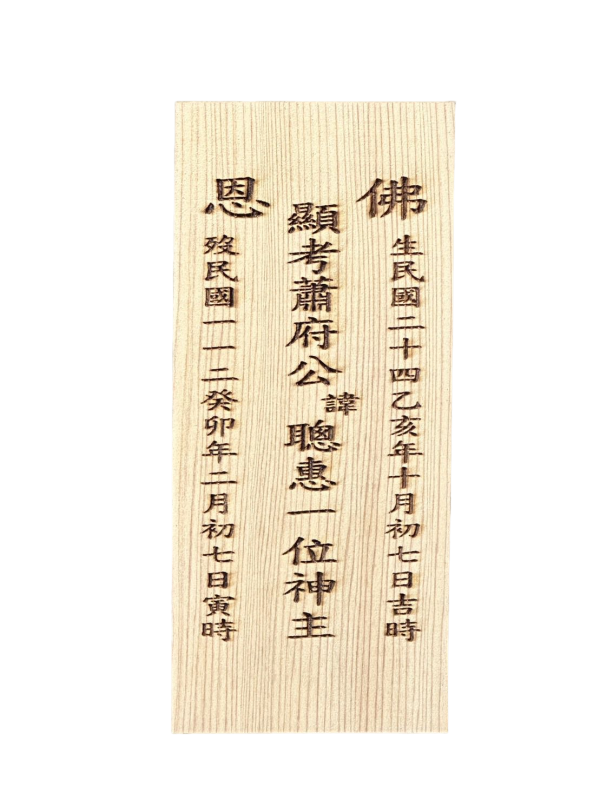 佛恩
生民國二十四乙亥年十月初七日吉時
顯考蕭府公諱聰惠一位神主
歿民國一一二癸卯年二月初七日寅時